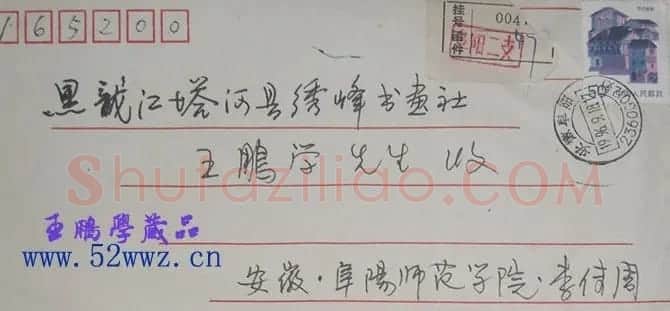 165200
挂号函件
004
阜阳二支
黑龙江塔河县绣峰书画社
王鹏学先生 收
Shufaziliao.COM
王鵬學藏品
www.52wwz.cn
安徽·阜陽师范学院·李付周